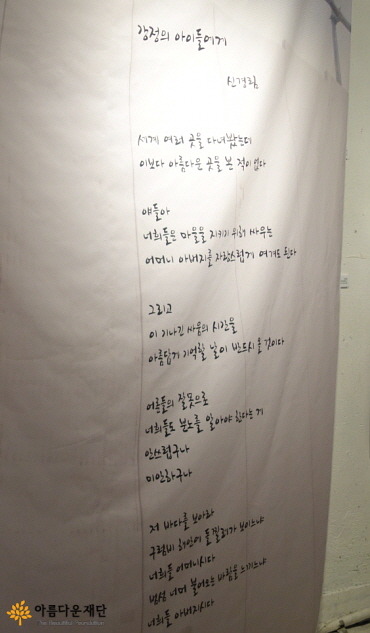 강정의 아이들에게
신경림
세계 여러 곳을 다녀봤는데
이보다 아름다운 곳을 본 적이 없다
얘들아
너희들은 마을을 지키기 위해 싸우는
어머니 아버지를 자랑스럽게 여겨도 된다
그리고
이 기나긴 싸움의 시간을
아름답게 기억할 날이 반드시 올 것이다
어른들의 잘못으로
너희들도 분노를 알아야 한다는 게
안쓰럽구나
미안하구나
저 바다를 보아라
구럼비 해안에 들꽃이 보이느냐
너희들 어머니시다
범섬 너머 불어오는 바람을 느끼느냐
너희들 아버지시다
아름다운재단
The Beautiful Foundation